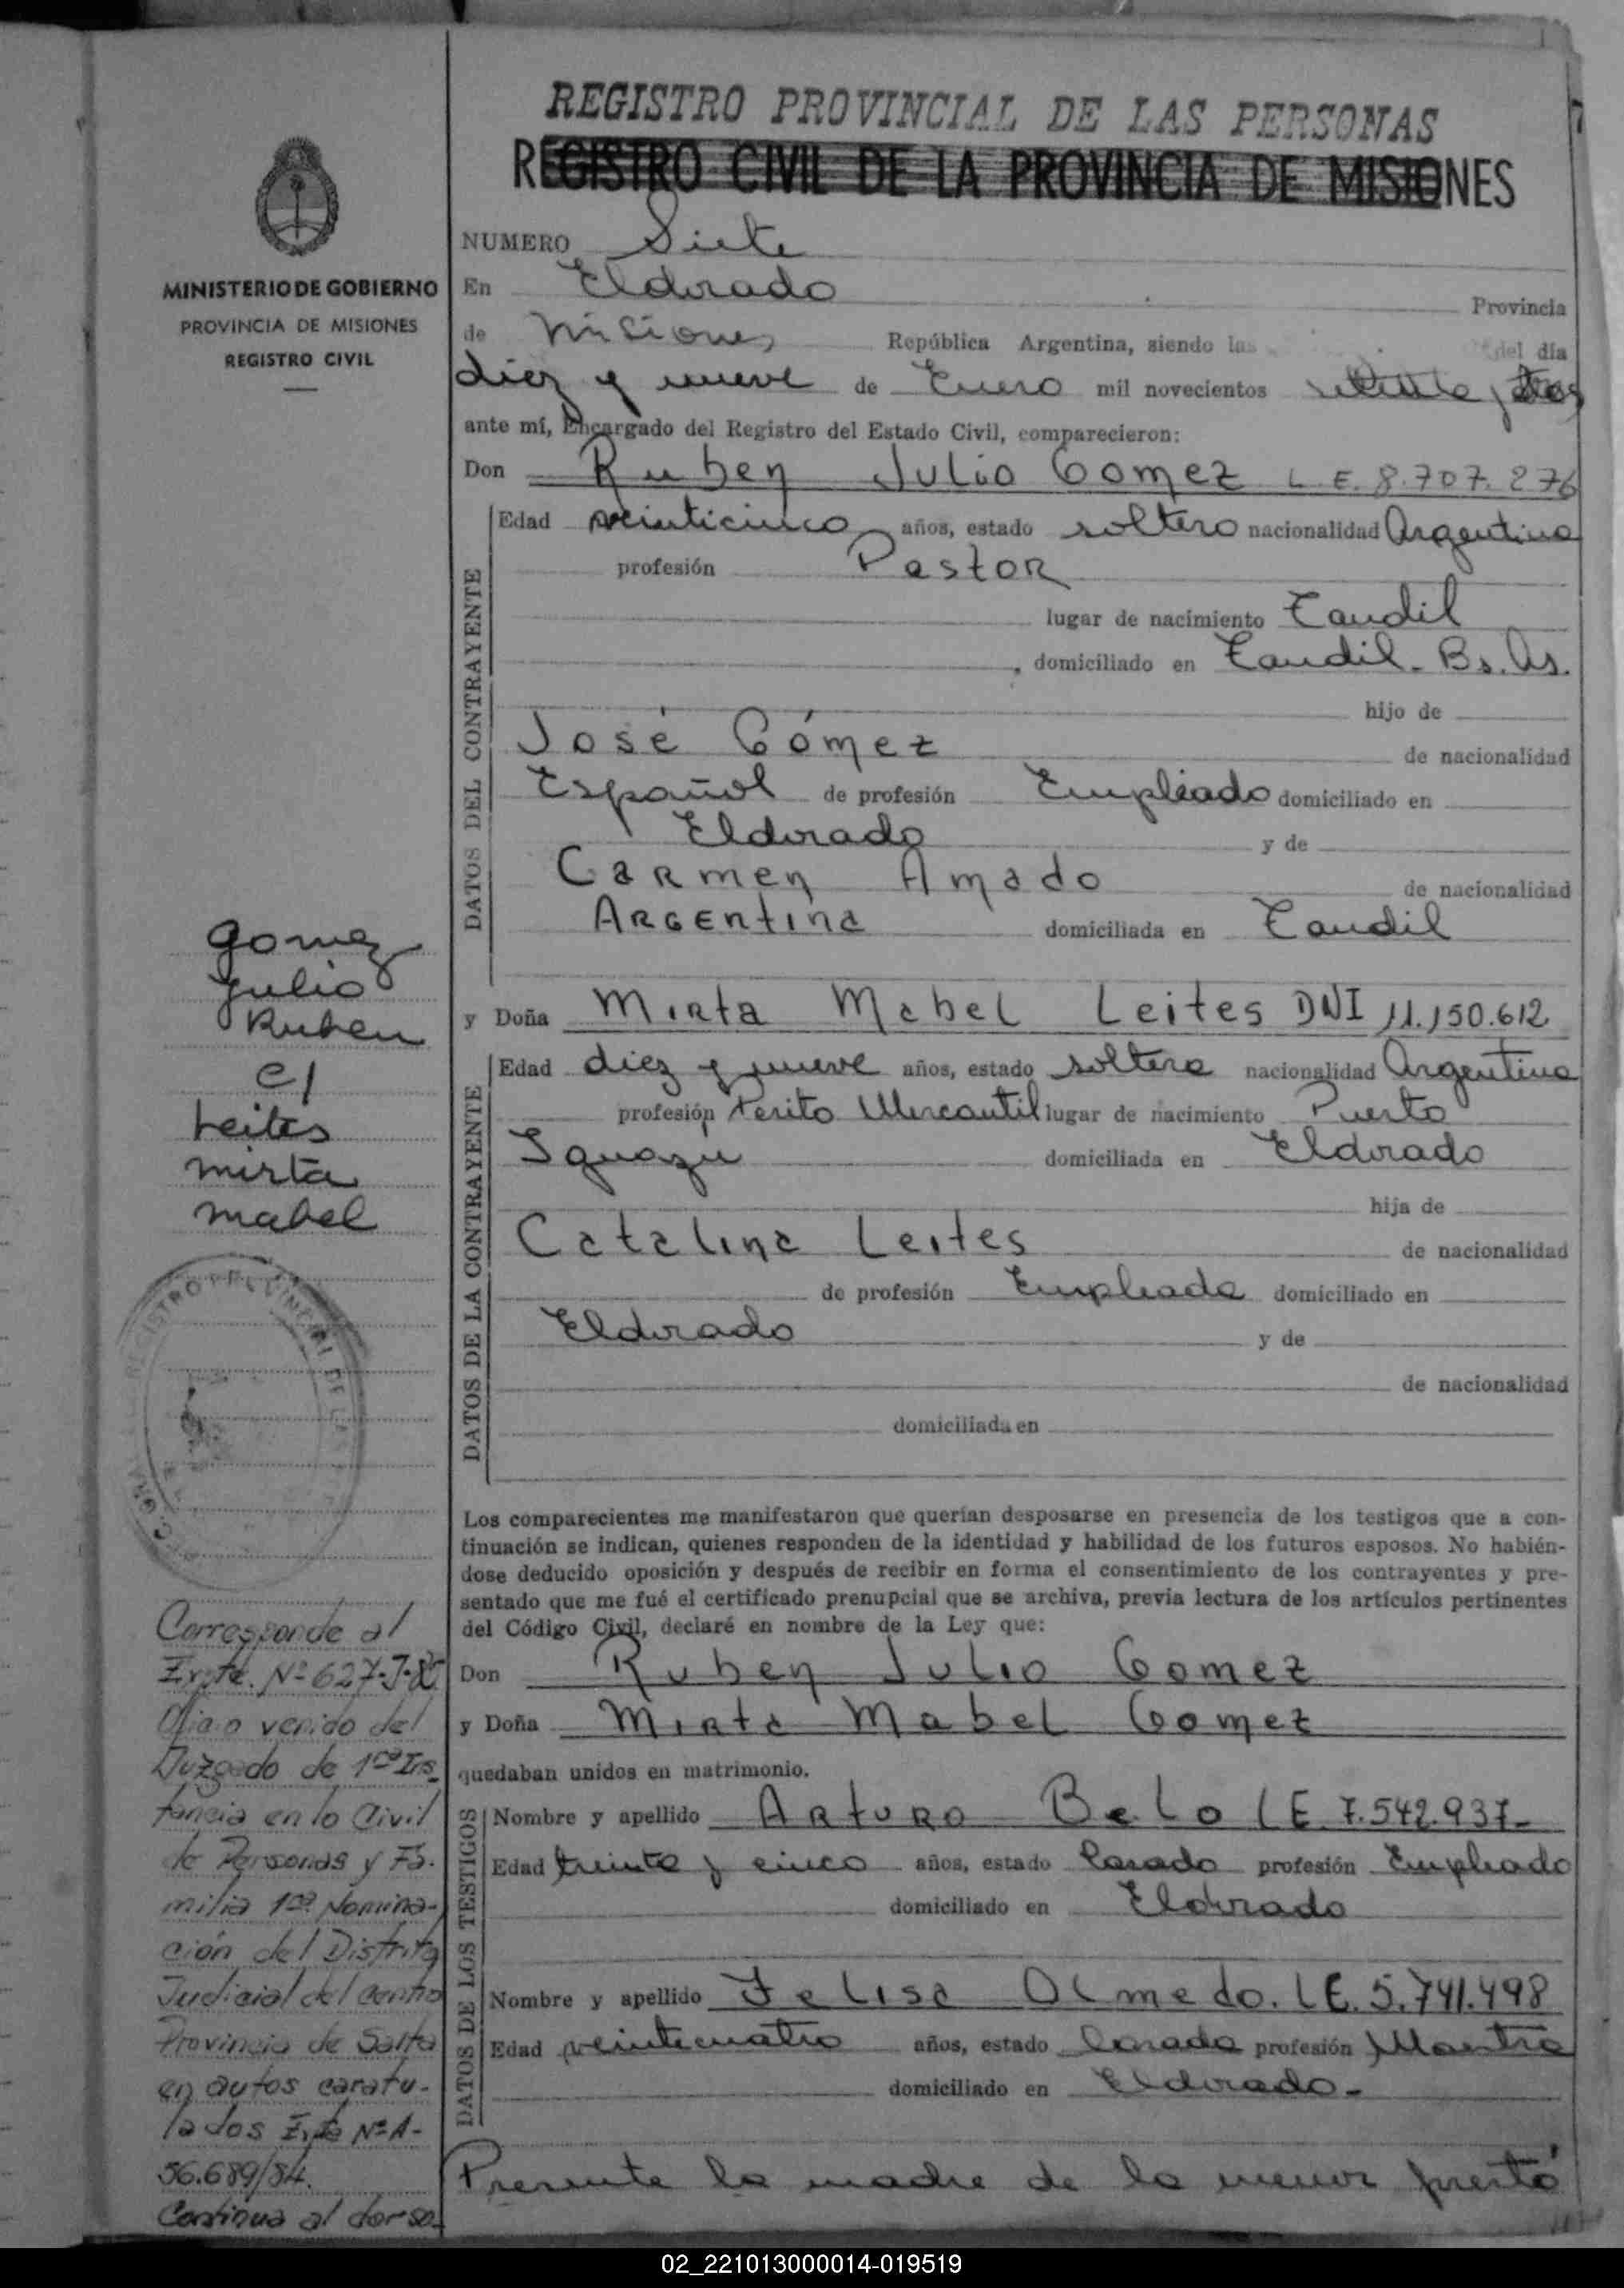 REGISTRO PROVINCIAL DE LAS PERSONAS
REGISTRO CIVIL DE LA PROVINCIA DE MISIONES
7
MINISTERIO DE GOBIERNO
PROVINCIA DE MISIONES
REGISTRO CIVIL
NUMERO Siete
En Eldorado Provincia
de Misiones República Argentina, siendo las del día
diez y nueve de Enero mil novecientos setenta y tres
ante mí, Encargado del Registro del Estado Civil, comparecieron:
Don Ruben Julio Gomez L E. 8.707.276
DATOS DEL CONTRAYENTE
Edad veinticinco años, estado soltero nacionalidad Argentina
profesión Pastor
lugar de nacimiento Tandil
, domiciliado en Tandil - Bs. As.
hijo de
José Gómez de nacionalidad
Español de profesión Empleado domiciliado en
Eldorado y de
Carmen Amado de nacionalidad
Argentina domiciliada en Tandil
y Doña Mirta Mabel Leites DNI 11.150.612
DATOS DE LA CONTRAYENTE
Edad diez y nueve años, estado soltera nacionalidad Argentina
profesión Perito Mercantil lugar de nacimiento Puerto
Iguazú domiciliada en Eldorado
hija de
Catalina Leites de nacionalidad
de profesión Empleada domiciliado en
Eldorado y de
de nacionalidad
domiciliada en
Los comparecientes me manifestaron que querían desposarse en presencia de los testigos que a con-
tinuación se indican, quienes responden de la identidad y habilidad de los futuros esposos. No habién-
dose deducido oposición y después de recibir en forma el consentimiento de los contrayentes y pre-
sentado que me fué el certificado prenupcial que se archiva, previa lectura de los artículos pertinentes
del Código Civil, declaré en nombre de la Ley que:
Don Ruben Julio Gomez
y Doña Mirta Mabel Gomez
quedaban unidos en matrimonio.
DATOS DE LOS TESTIGOS
Nombre y apellido Arturo Belo L E. 7.542.937-
Edad treinta y cinco años, estado Casado profesión Empleado
domiciliado en Eldorado
Nombre y apellido Felisa Olmedo. L E. 5.741.498
Edad veinticuatro años, estado Casada profesión Maestra
domiciliado en Eldorado-
Presente la madre de la menor prestó
Gomez
Julio
Ruben
c/
Leites
Mirta
Mabel
REGISTRO PROVINCIAL DE LAS
Corresponde al
Expte. Nº 627-J-85
Oficio venido del
Juzgado de 1ra Ins-
tancia en lo Civil
de Personas y Fa-
milia 1ra Nomina-
ción del Distrito
Judicial del Centro
Provincia de Salta
en autos caratu-
lados Expte Nº A-
56.689/84.
Continua al dorso.
02_221013000014-019519